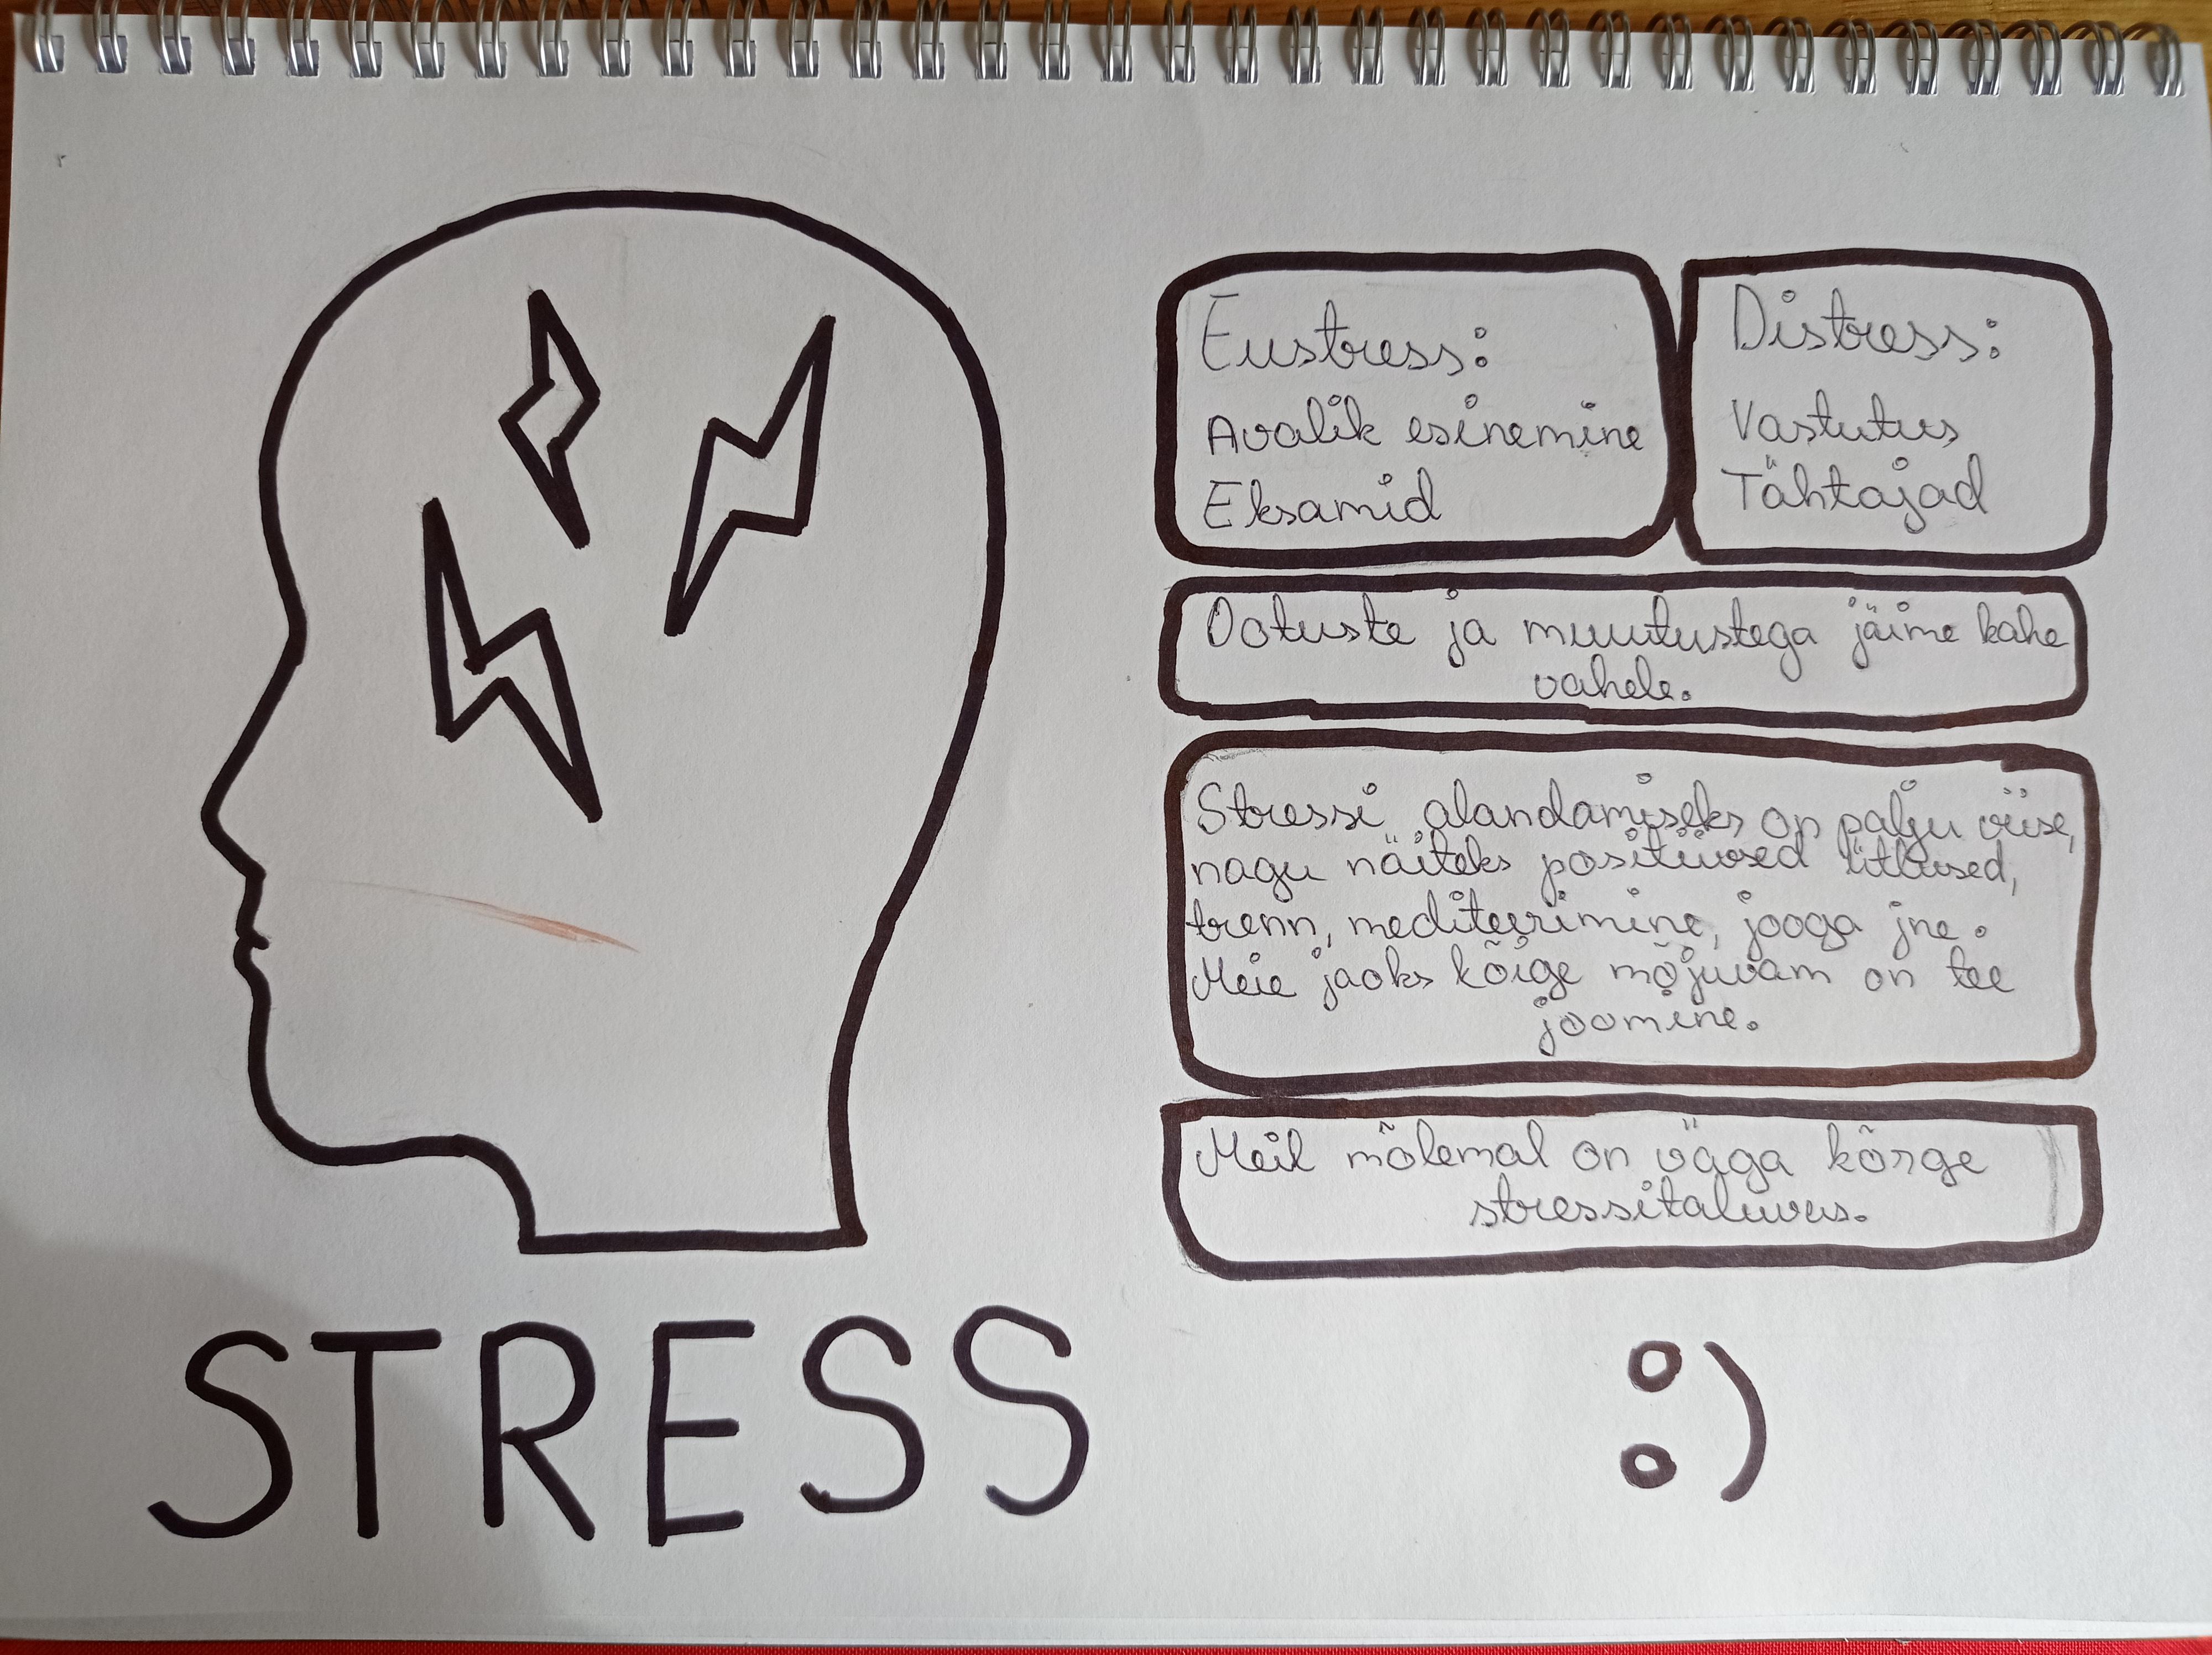 Eustress:
Avalik esinemine
Eksamid
Distress:
Vastutus
Tähtajad
Ootuste ja muutustega jäime kahe
vahele.
Stressi alandamiseks on palju viise,
nagu näiteks positiivsed ütlused,
trenn, mediteerimine, jooga jne.
Meie jaoks kõige mõjuvam on tee
joomine.
Meil mõlemal on väga kõrge
stressitaluvus.
STRESS
:)